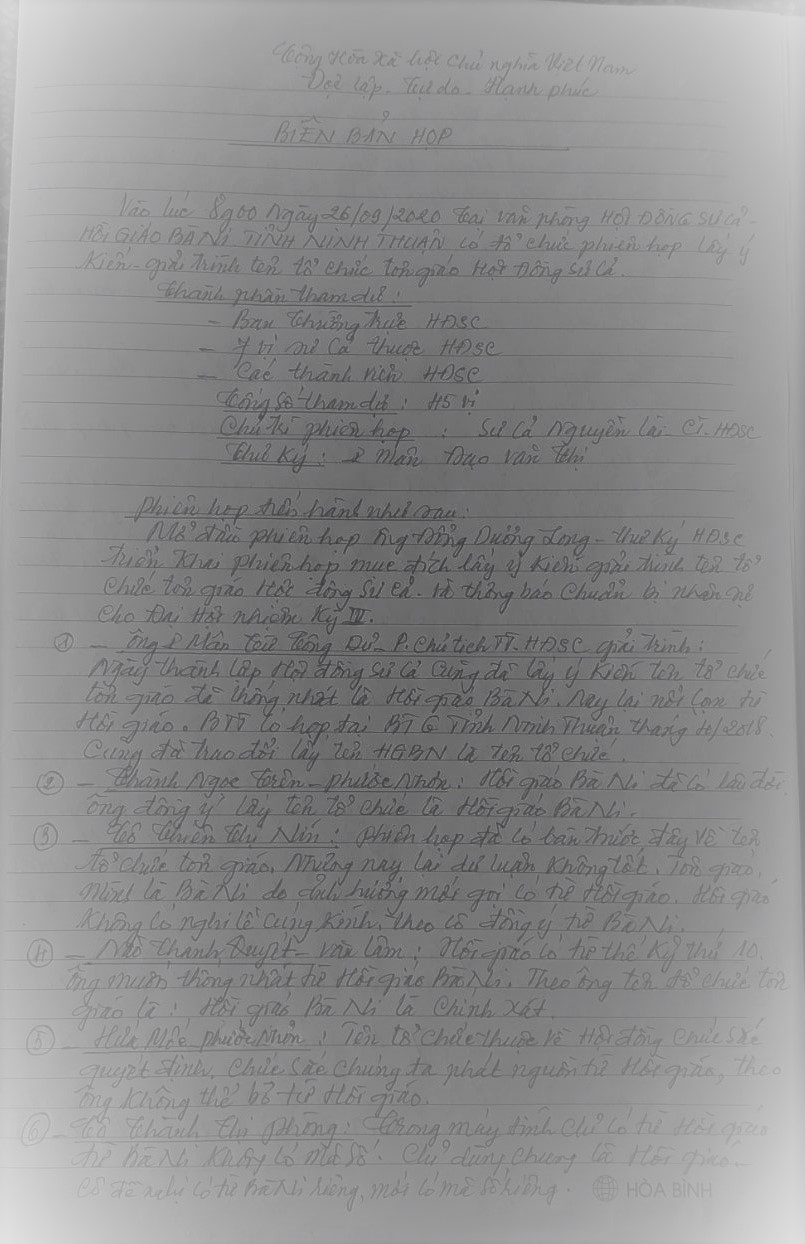 Cộng Hòa Xã hội Chủ nghĩa Việt Nam
Độc lập. Tự do. Hạnh phúc
BIÊN BẢN HỌP
Vào lúc 8g00 Ngày 26/09/2020 tại văn phòng HỘI ĐỒNG SƯ CẢ -
HỒI GIÁO BÀ NI TỈNH NINH THUẬN có tổ chức phiên họp lấy ý
Kiến - giải trình tên tổ chức tôn giáo Hội Đồng Sư Cả.
Thành phần tham dự :
- Ban Thường Trực HĐSC
- 7 vị sư Cả thuộc HĐSC
- Các thành viên HĐSC
Tổng số tham dự : 45 vị
Chủ trì phiên họp : Sư Cả Nguyễn Lài - CT. HĐSC
Thư Ký : Mân Đạo Văn Thị
Phiên họp tiến hành như sau :
Mở đầu phiên họp ông Đổng Dưỡng Long - thư ký HĐSC
triển Khai phiên họp mục đích lấy ý kiến giải trình tên tổ
chức tôn giáo Hội đồng Sư Cả. Và thông báo chuẩn bị nhân sự
cho Đại Hội nhiệm Kỳ III.
① - Ông Mân Từ Công Dư - P. Chủ tịch TT. HĐSC giải trình :
Ngày thành lập Hội đồng Sư Cả cũng đã lấy ý kiến tên tổ chức
tôn giáo đã thống nhất là Hồi giáo Bà Ni. Nay lại nổi cộm từ
Hồi giáo. BTT có họp tại BTG Tỉnh Ninh Thuận tháng 4/2018.
Cũng đã trao đổi lấy tên HGBN là tên tổ chức.
② - Thành Ngọc Trên - Phước Nhơn : Hồi giáo Bà Ni đã có lâu đời.
Ông đồng ý lấy tên tổ chức là Hồi giáo Bà Ni.
③ - Cô Thiên Thị Nín : Phiên họp đã có bàn trước đây về tên
tổ chức tôn giáo. Nhưng nay lại dư luận không tốt. Tôn giáo
mình là Bà Ni do ảnh hưởng mới gọi có từ Hồi giáo. Hồi giáo
Không có nghi lễ cúng kính, theo cô đồng ý từ Bà Ni.
④ - Não Thanh Quyết - Văn Lâm : Hồi giáo có từ thế Kỷ thứ 10.
Ông muốn thống nhất từ Hồi giáo Bà Ni. Theo ông tên tổ chức tôn
giáo là : Hồi giáo Bà Ni là Chính Xát.
⑤ - Hứa Mốc Phước Nhơn : Tên tổ chức thuộc về Hội đồng Chức sắc
quyết định. Chức Sắc Chúng ta phát nguồn từ Hồi giáo, theo
ông không thể bỏ từ Hồi giáo.
⑥ - Cô Thành Thị Phông : Trong máy tính chỉ có từ Hồi giáo
từ Bà Ni Không có mã số. Chỉ dùng chung là Hồi giáo.
Cô đề nghị có từ Bà Ni riêng, mới có mã số riêng.
HÒA BÌNH